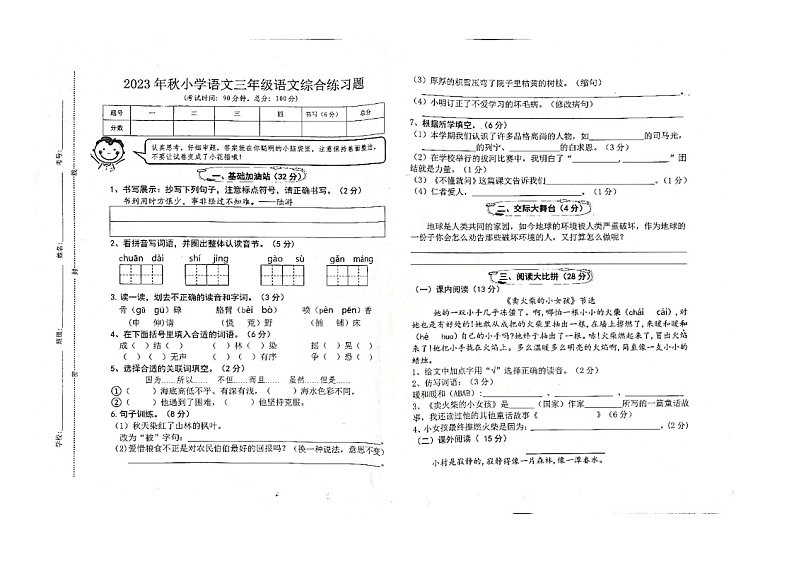 2023 年秋小学语文三年级语文综合练习题
(考试时间: 90分钟。总分: 100分)
题号 一 二 三 四 书写(6分) 总分
分数
认真思考,仔细审题。答案就在你聪明的小脑袋里。注意保持卷面整洁,
不要让试卷变成了小花猫哦!
一、基础加油站(32分)
1、书写展示:抄写下列句子,注意标点符号,请正确书写。(2分)
书到用时方恨少,事非经过不知难。——陆游
2、看拼音写词语,并圈出整体认读音节。(5分)
chuān dài shí jìng gào sù gǎn máng
3. 读一读,划去不正确的读音和字词。(3分)
骨(gū gú)碌 胳臂(bèi bò) 喷(pèn pēn)香
(申 伸)请 (慌 荒)野 (捕 铺)床
4、在下面括号里填入合适的词语。(6分)
成( )结( ) ( )林( )染 摇( )晃( )
( )( )无声 ( )( )有序 争( )恐( )
5、选择合适的关联词填空。(2分)
因为……所以…… 不但……而且…… 虽然……但是……
①( )海底高低不平、有深有浅,( )海水色彩不同。
②( )他遇到了困难,( )他坚持克服。
6. 句子训练。(8分)
(1)秋天染红了山林的枫叶。
改为“被”字句:
(2)爱惜粮食不正是对农民伯伯最好的回报吗?(换一种说法,意思不变)
学校: 班级: 姓名: 考号:
密 封 线
(3)厚厚的积雪压弯了院子里枯黄的树枝。(缩句)
(4)小明订正了不爱学习的坏毛病。(修改病句)
7、根据所学填空。(6分)
(1)本学期我们认识了许多品格高尚的人物,如 的司马光,
的列宁、 的白求恩。(3分)
(2)在学校举行的拔河比赛中,我明白了“ , ”团
结就是力量。(1分)
(3)《不懂就问》这篇课文告诉我们 。(1分)
(4)仁者爱人, 。(1分)
二、交际大舞台(4分)
地球是人类共同的家园,如今地球的环境被人类严重破坏,作为地球的
一份子你会怎么劝告那些破坏环境的人,又打算怎么做呢?
三、阅读大比拼(28分)
(一)课内阅读(13分)
《卖火柴的小女孩》节选
她的一双小手几乎冻僵了。啊,哪怕一根小小的火柴(chái cái),对
她也是有好处的!她敢从成把的火柴里抽出一根,在墙上擦燃了,来暖和暖和
(hé huo)自己的小手吗?她终于抽出了一根。哧!火柴燃起来了,冒出火焰
来了!她把小手拢在火焰上。多么温暖多么明亮的火焰啊,简直像一支小小的
蜡烛。
1、给文中加点字用“√”选择正确的读音。(2分)
2、仿写词语:(3分)
暖和暖和(ABAB): 、 、
3、《卖火柴的小女孩》是 (国家)作家 所写的一篇童话故
事,我还读过他的其他童话故事《 》(6分)
4、小女孩最终擦燃火柴是因为: 。(2分)
(二)课外阅读( 15分)
小村是寂静的,寂静得像一片森林,像一潭春水。